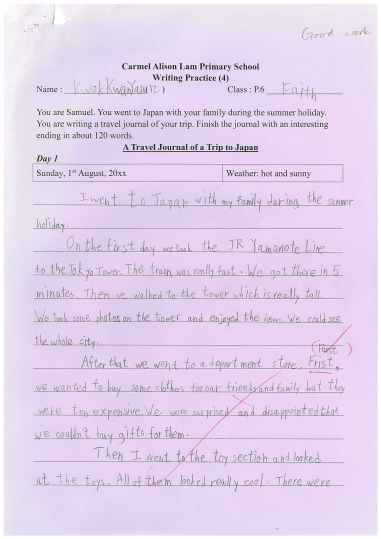 Good work
Carmel Alison Lam Primary School
Writing Practice (4)
Name : Kwok Kwan Yau (12 ) Class : P.6 Faith
You are Samuel. You went to Japan with your family during the summer holiday.
You are writing a travel journal of your trip. Finish the journal with an interesting
ending in about 120 words.
A Travel Journal of a Trip to Japan
Day 1
Sunday, 1st August, 20xx Weather: hot and sunny
I went to Japan with my family during the summer
holiday.
On the first day we took the JR Yamanote Line
to the Tokyo Tower. The train was really fast. We got there in 5
minutes. Then we walked to the tower which is really tall.
We took some photos on the tower and enjoyed the views. We could see
the whole city.
(First)
After that we went to a department store. Frist,
we wanted to buy some clothes for our friends and family but they
were too expensive. We were surprised and disappointed that
we couldn't buy gifts for them.
Then I went to the toy section and looked
at the toys. All of them looked really cool. There were